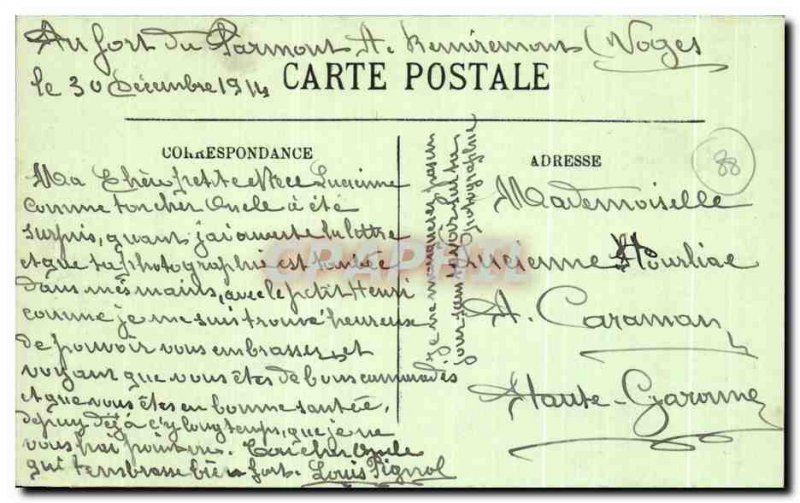 Au fort du Parmont A. Remiremont (Voges
le 30 décembre 1914
CARTE POSTALE
CORRESPONDANCE
Ma Chère petite Niece Lucienne
comme ton cher Oncle a été
surpris, quant j'ai ouverte la lottre
et que ta photographie est tombée
dans mes mains, avec le petit Henri
comme je me suis trouvé heureuse
de pouvoir vous embrasser, et
voyant que vous êtes de bons cammarades
et que vous êtes en bonne santée,
depuy déjà c'y longtemps, que je ne
vous hai point vu. Ton cher Oncle
qui tembrasse bien fort. Louis Pignol
je ne manquerès pas un
jour sans la voir sur ta
photographie
ADRESSE
88
Mademoiselle
Lucienne Hourliae
A. Caraman
Haute-Garonne